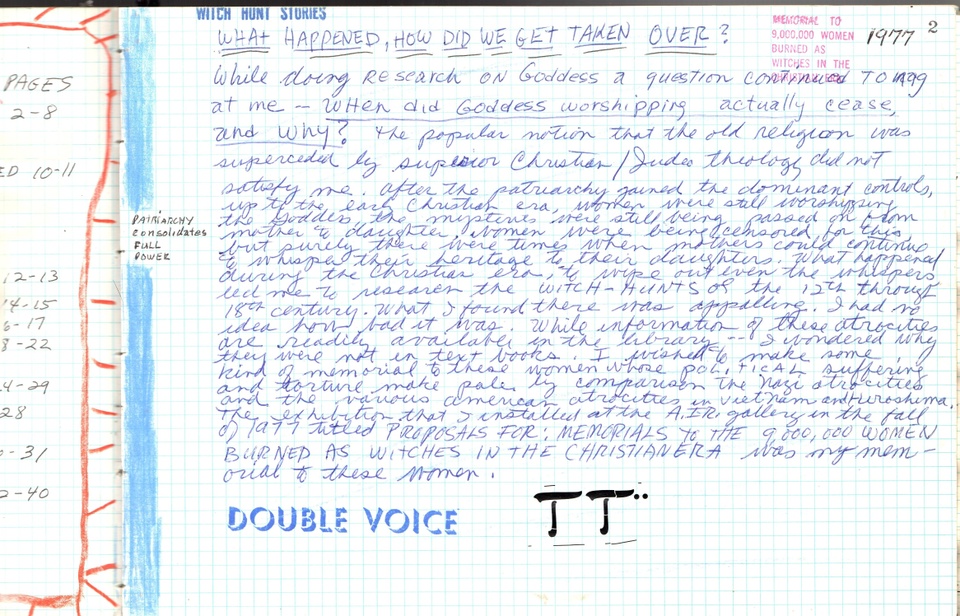 PAGES
2-8
ED 10-11
12-13
14-15
6-17
8-22
24-29
28
0-31
2-40
PATRIARCHY
CONSOLIDATES
FULL
POWER
WITCH HUNT STORIES
WHAT HAPPENED, HOW DID WE GET TAKEN OVER?
MEMORIAL TO
9,000,000 WOMEN
BURNED AS
WITCHES IN THE
1977 2
While doing RESEARCH ON Goddess a question continued TO nag
at me — WHEN did Goddess worshipping actually cease,
and WHY? The popular notion that the old religion was
superceded by superior Christian/Judeo theology did not
satisfy me. After the patriarchy gained the dominant controls,
up to the early Christian era, women were still worshipping
the Goddess, the mysteries were still being passed on from
mother to daughter. Women were being censored for this
but surely there were times when mothers could continue
to whisper their heritage to their daughters. What happened
during the Christian era, to wipe out even the whispers
led me to research the WITCH-HUNTS OF the 12th through
18th century. What I found there was appalling. I had no
idea how bad it was. While information of these atrocities
are readily available in the library -- I wondered why
they were not in text books. I wished to make some
kind of memorial to these women whose POLITICAL suffering
and torture make pale by comparison the Nazi atrocities
and the various american atrocities in Vietnam and Hiroshima.
The exhibition that I installed at the A.I.R. gallery in the fall
of 1977 titled PROPOSALS FOR: MEMORIALS TO THE 9,000,000 WOMEN
BURNED AS WITCHES IN THE CHRISTIAN ERA was my mem-
orial to these women.
DOUBLE VOICE